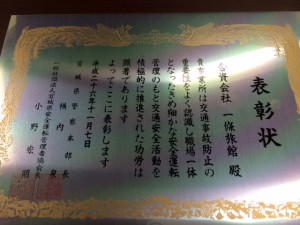 表彰状
合資会社 一條旅館 殿
貴事業所は交通事故防止の
重要性をよく認識し職場一体
となったきめ細かな安全運転
管理のもと交通安全活動を
積極的に推進された功労は
顕著であります
よってここに表彰します
平成二十六年十一月七日
宮城県警察本部長
横内 泉
一般社団法人宮城県安全運転管理者協会会長
小野 宏明